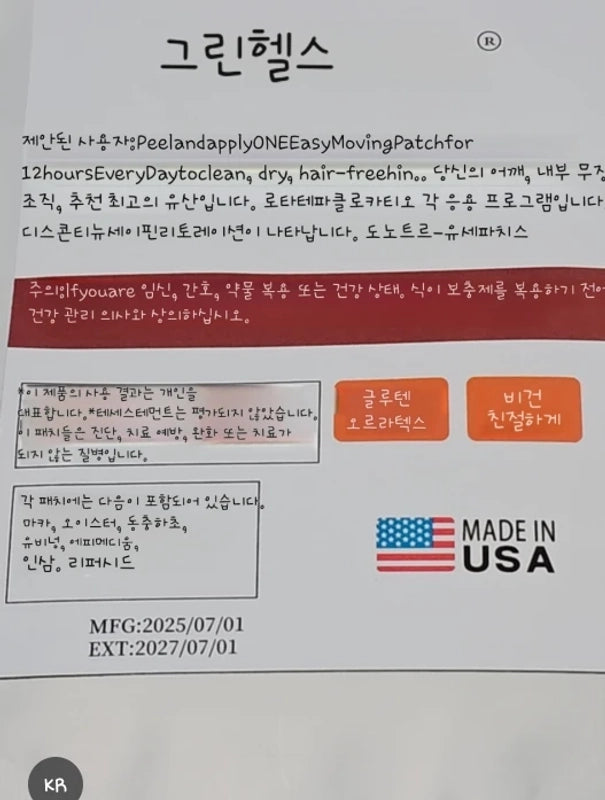 그린헬스 ®
제안된 사용자:PeelandapplyONEEasyMovingPatchfor
12hoursEveryDaytoclean, dry, hair-freehin.. 당신의 어깨, 내부 무장
조직, 추천 최고의 유산입니다. 로타테파클로카티오 각 응용 프로그램입니다
디스콘티뉴세이핀리토레이션이 나타납니다. 도노트르-유세파치스
주의:Ifyouare 임신, 간호, 약물 복용 또는 건강 상태. 식이 보충제를 복용하기 전에
건강 관리 의사와 상의하십시오.
*이 제품의 사용 결과는 개인을
대표합니다.*테세스테먼트는 평가되지 않았습니다.
이 패치들은 진단, 치료 예방, 완화 또는 치료가
되지 않는 질병입니다.
글루텐
오르라텍스
비건
친절하게
각 패치에는 다음이 포함되어 있습니다.
마카, 오이스터, 동충하초,
유비넝, 에피메디움,
인삼. 리퍼시드
MADE IN
USA
MFG:2025/07/01
EXT:2027/07/01
KR